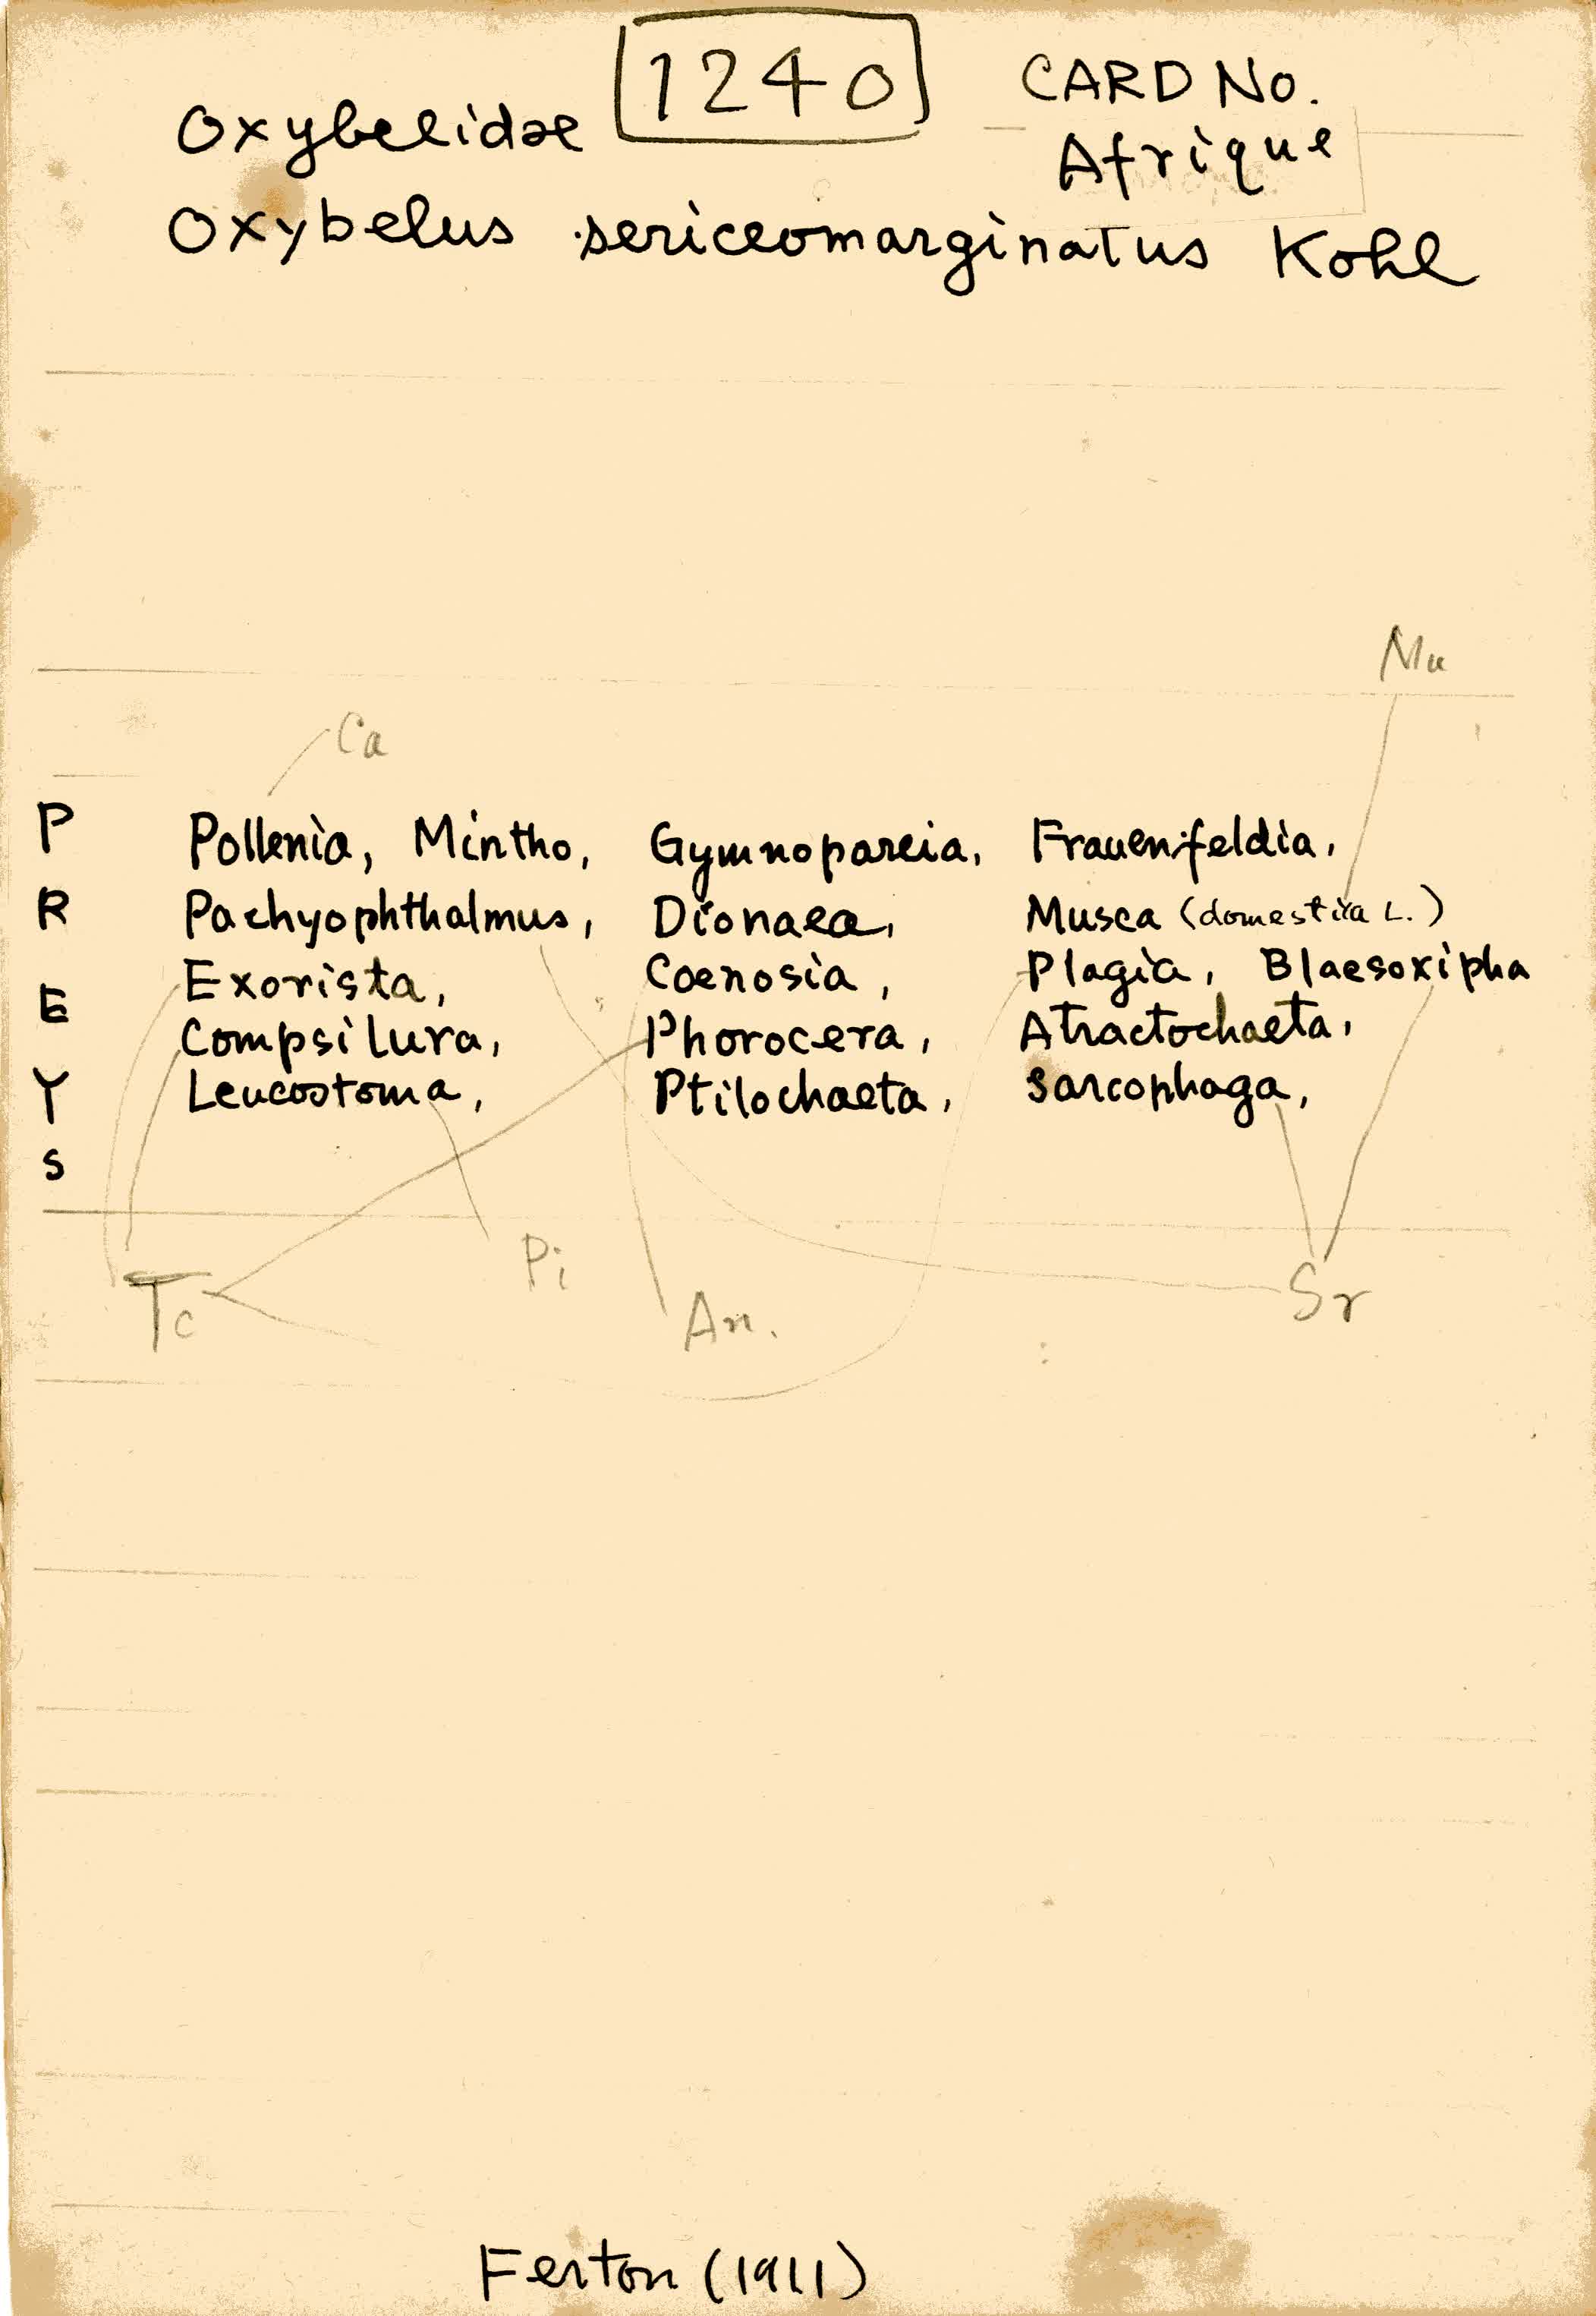 1240 CARD No.
Oxybelidae Afrique
Oxybelus sericeomarginatus Kohl
Mu
Ca
P
R
E
Y
S
Pollenia, Mintho, Gymnopareia, Frauenfeldia,
Pachyophthalmus, Dionaea, Musca (domestica L.)
Exorista, Coenosia, Plagia, Blaesoxipha
Compsilura, Phorocera, Atractochaeta,
Leucostoma, Ptilochaeta, Sarcophaga,
Tc Pi An. Sr
Ferton (1911)